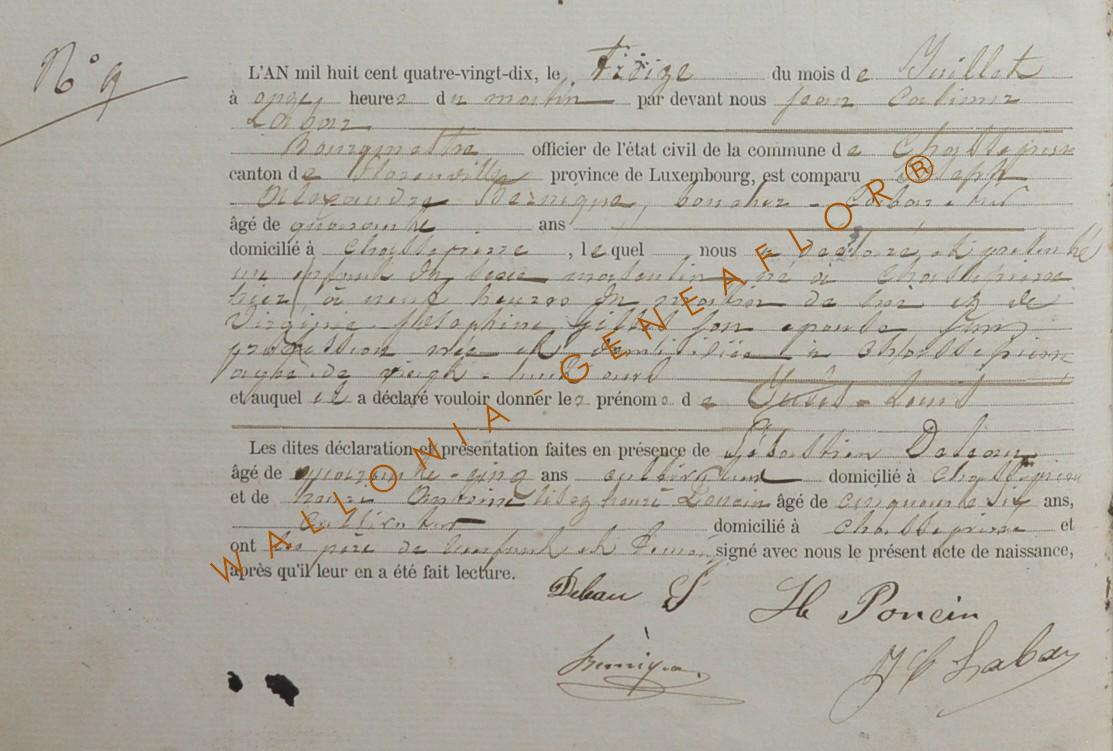 N° 9
L'AN mil huit cent quatre-vingt-dix, le Treize du mois de Juillet
à onze heures du matin par devant nous Jean Casimir
Labar
Bourgmestre officier de l'état civil de la commune de Chassepierre
canton de Florenville province de Luxembourg, est comparu Joseph
Alexandre cabaretier
âgé de quarante ans
domicilié à Chassepierre, lequel nous a déclaré et présenté
un enfant du sexe masculin né à Chassepierre
hier à neuf heures du matin de lui et de
Virginie Joséphine son épouse sans
profession née et domiciliée à Chassepierre
agée de vingt-huit ans
et auquel il a déclaré vouloir donner les prénoms de Jules-Louis
Les dites déclaration et présentation faites en présence de Sébastien
âgé de quarante-cinq ans cultivateur domicilié à Chassepierre
et de Poncin âgé de cinquante six ans,
cultivateur domicilié à Chassepierre et
ont les père de l'enfant et témoins signé avec nous le présent acte de naissance,
après qu'il leur en a été fait lecture.
S
H Poncin
J C Labar
WALLONIA-GENEAFLOR®